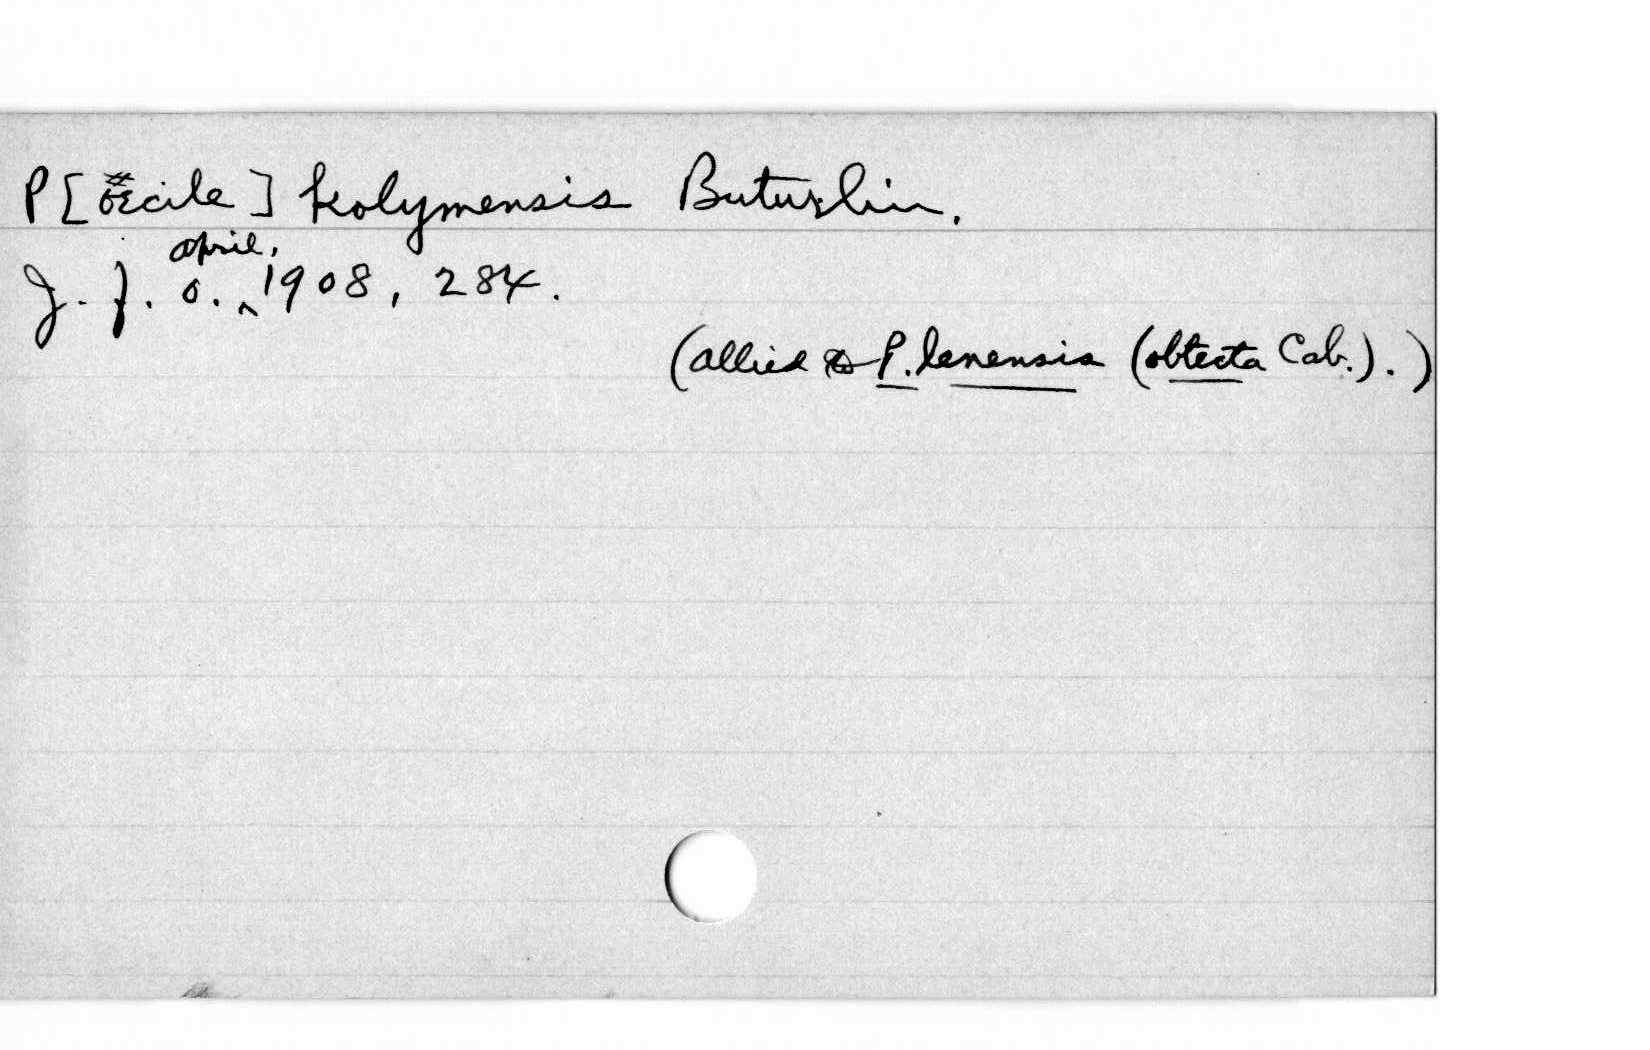 P[oecile] kolymensis Buturlin.
J. f. O. April, 1908, 284.
(allied to P. lenensis (obtecta Cab.).)